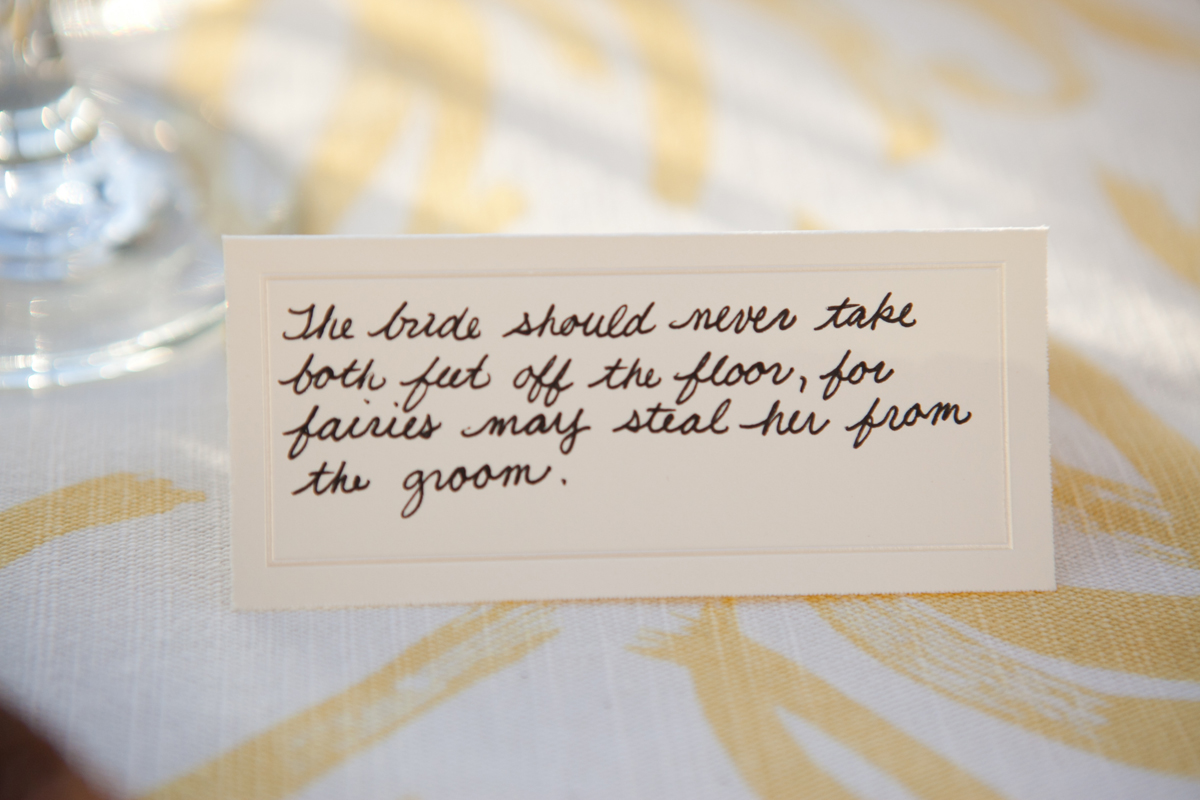 The bride should never take
both feet off the floor, for
fairies may steal her from
the groom.